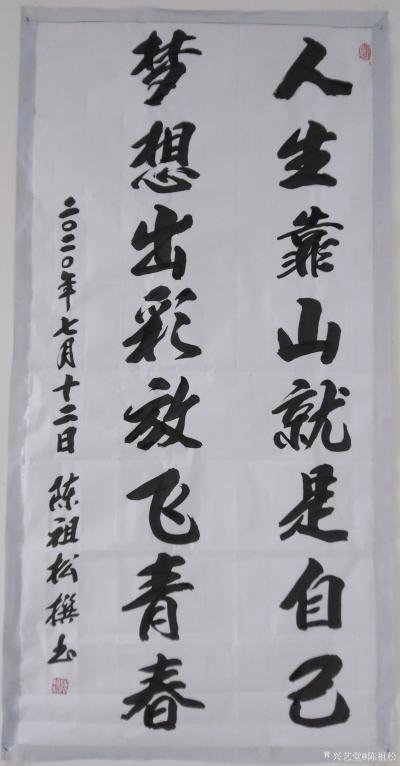 人生靠山就是自己
梦想出彩放飞青春
二〇二〇年七月十二日 陈祖松撰书
兴艺堂@陈祖松